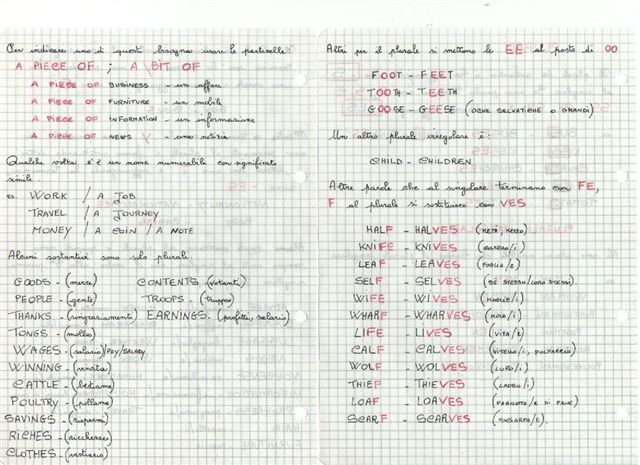 Per indicare uno di questi bisogna usare le particelle:
A PIECE OF ; A BIT OF
A PIECE OF BUSINESS - un affare
A PIECE OF FURNITURE - un mobile
A PIECE OF INFORMATION - un informazione
A PIECE OF NEWS - una notizia
Qualche volta c'è un nome numerabile con significato
simile.
es. WORK / A JOB
TRAVEL / A JOURNEY
MONEY / A COIN / A NOTE
Alcuni sostantivi sono solo plurali.
GOODS - (merce) CONTENTS -
PEOPLE - (gente) TROOPS - (truppe)
THANKS - (ringraziamenti) EARNINGS - (profitti, salario)
TONGS - (molle)
WAGES - (salario)/PAY/SALARY
WINNING - (vincita)
CATTLE - (bestiame)
POULTRY - (pollame)
SAVINGS - (risparmi)
RICHES - (ricchezze)
CLOTHES - (vestiario)
Altri per il plurale si mettono le EE al posto di OO
FOOT - FEET
TOOTH - TEETH
GOOSE - GEESE (OCHE SELVATICHE O GRANDI)
Un altro plurale irregolare è:
CHILD - CHILDREN
Altre parole che al singolare terminano con FE,
F al plurale si sostituisce con VES
HALF - HALVES (METÀ, MEZZO)
KNIFE - KNIVES
LEAF - LEAVES (FOGLIA/E)
SELF - SELVES (SÈ STESSO/LORO STESSI)
WIFE - WIVES (MOGLIE/I)
WHARF - WHARVES (MOLO/I)
LIFE - LIVES (VITA/E)
CALF - CALVES (VITELLO/I, POLPACCIO)
WOLF - WOLVES (LUPO/I)
THIEF - THIEVES (LADRO/I)
LOAF - LOAVES (PAGNOTTA/E DI PANE)
SCARF - SCARVES (SCIARPA/E).